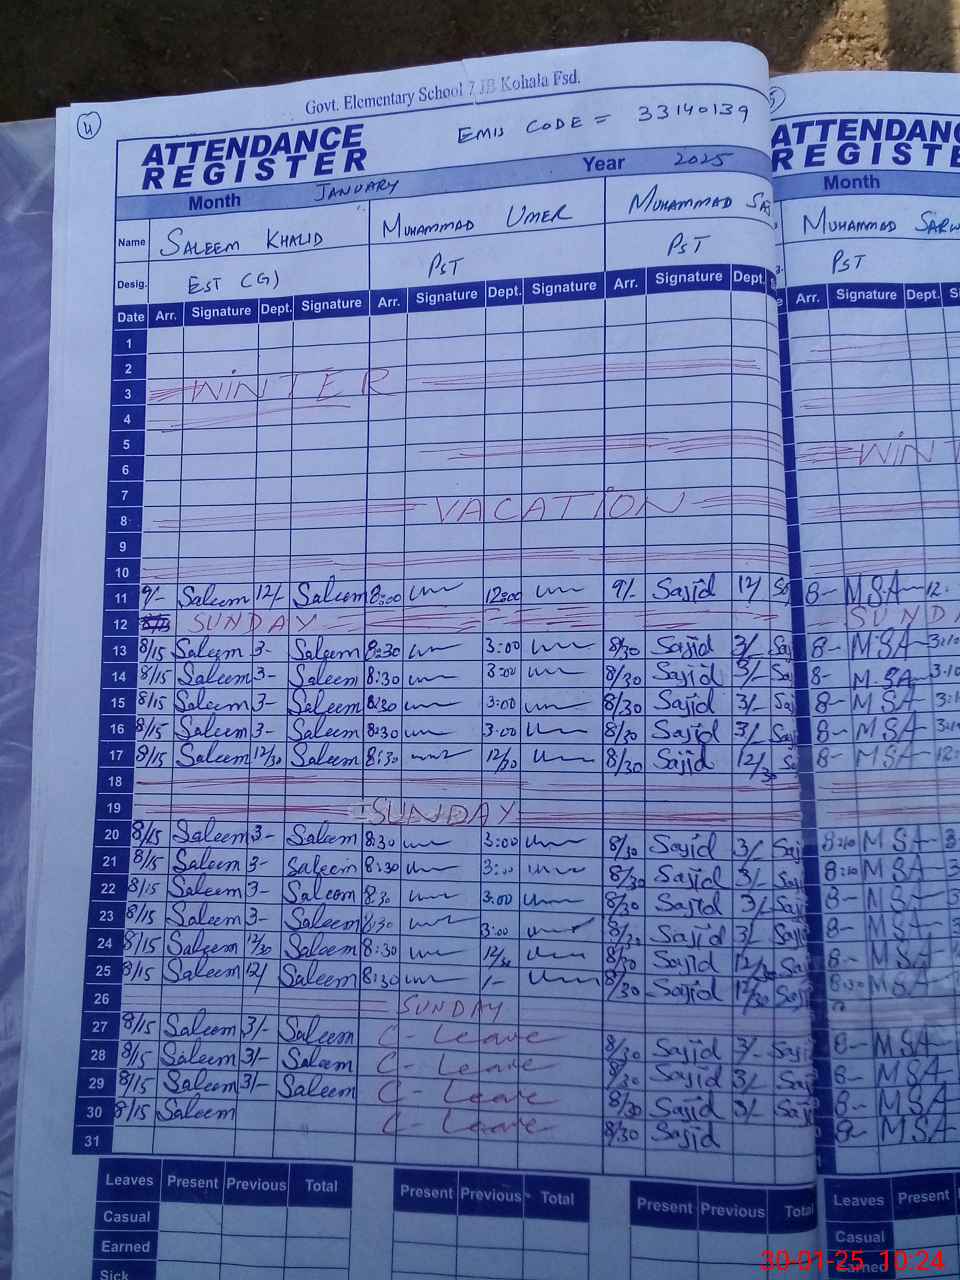 Govt. Elementary School 7 JB Kohala Fsd.
4
EMIS CODE = 33140139
5
ATTENDANCE REGISTER
ATTENDANC
REGISTE
Month JANUARY Year 2025
Month
Name SALEEM KHALID MUHAMMAD UMER MUHAMMAD SAJ MUHAMMAD SARW
Desig. EST (G) PST PST PST
Date Arr. Signature Dept. Signature Arr. Signature Dept. Signature Arr. Signature Dept. Arr. Signature Dept.
1
2
3 WINTER
4
5
6 WIN
7
8 VACATION
9
10
11 9/- Saleem 12/- Saleem 8:00 12:00 9/- Sajid 12/ 8- MSA 12.
12 SUNDAY SUND
13 8/15 Saleem 3- Saleem 8:30 3:00 8/30 Sajid 3/- Saj 8- MSA 3:10
14 8/15 Saleem 3- Saleem 8:30 3:00 8/30 Sajid 3/- Saj 8- M.SA 3:10
15 8/15 Saleem 3- Saleem 8:30 3:00 8/30 Sajid 3/- Saj 8- MSA
16 8/15 Saleem 3- Saleem 8:30 3:00 8/30 Sajid 3/- Saj 8- MSA
17 8/15 Saleem 12/30 Saleem 8:30 12/30 8/30 Sajid 12/30 8- MSA 12:
18
19 SUNDAY
20 8/15 Saleem 3- Saleem 8:30 3:00 8/30 Sajid 3/- Saj 8:10 MSA 3-
21 8/15 Saleem 3- Saleem 8:30 3:00 8/30 Sajid 3/- Saj 8:10 MSA 3
22 8/15 Saleem 3- Saleem 8:30 3:00 8/30 Sajid 3/- Saj 8- MSA 3
23 8/15 Saleem 3- Saleem 8:30 3:00 8/30 Sajid 3/- Saj 8- MSA
24 8/15 Saleem 12/30 Saleem 8:30 12/30 8/30 Sajid 12/30 Saj 8- MSA
25 8/15 Saleem 12/ Saleem 8:30 1- 8/30 Sajid 12/30 Saj 8:30 MSA
26 SUNDAY
27 8/15 Saleem 3/- Saleem C- Leave 8/30 Sajid 3/- Saj 8- MSA
28 8/15 Saleem 3/- Saleem C- Leave 8/30 Sajid 3/- Saj 8- MSA
29 8/15 Saleem 3/- Saleem C- Leave 8/30 Sajid 3/- Saj 8- MSA
30 8/15 Saleem C- Leave 8/30 Sajid 8- MSA
31
Leaves Present Previous Total Present Previous Total Present Previous Total Leaves Present
Casual Casual
Earned Earned
Sick
30-01-25 10:24